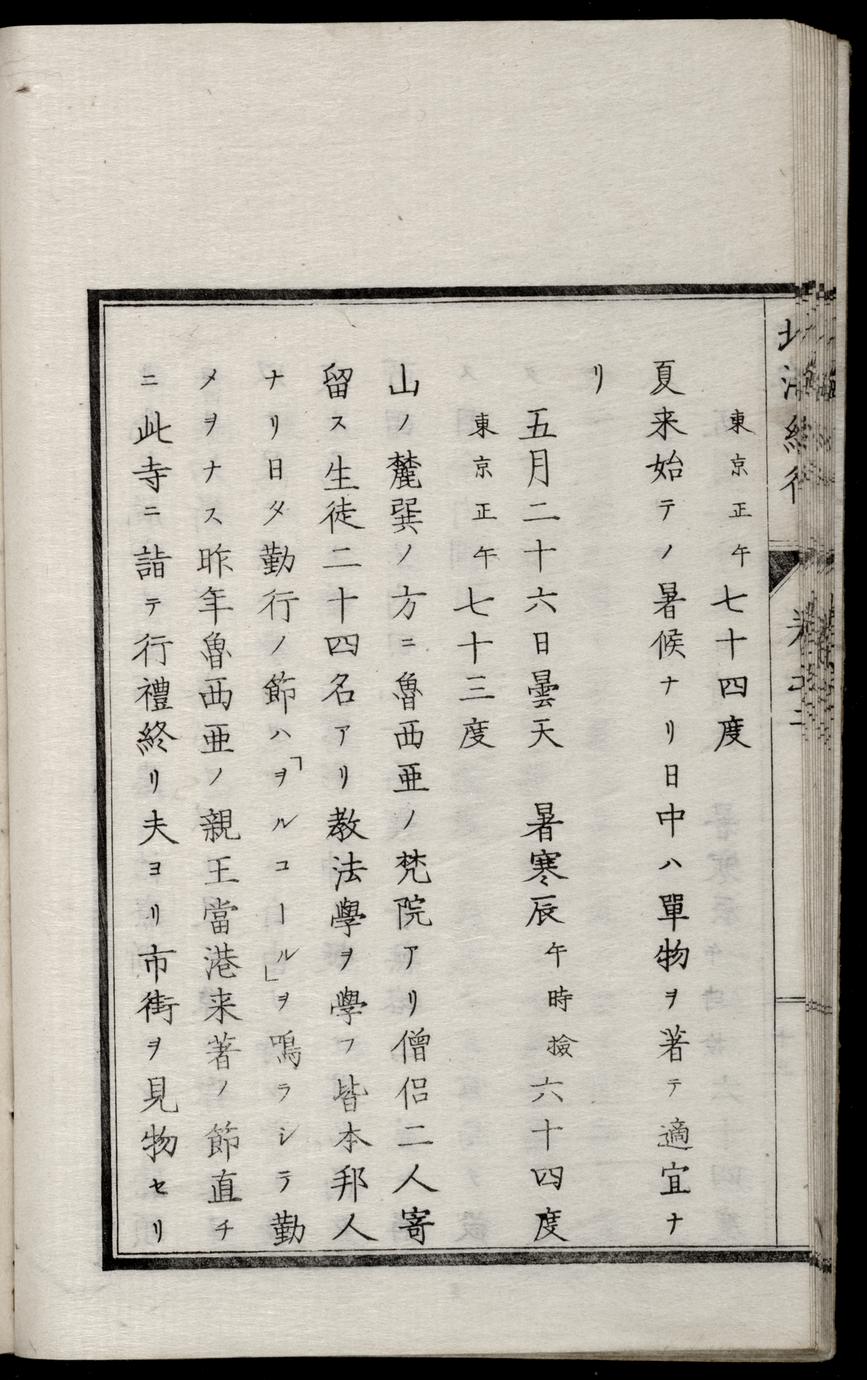 東京正午七十四度
夏来始テノ暑候ナリ日中ハ單物ヲ著テ適宜ナ
リ
五月二十六日曇天 暑寒辰午時撿六十四度
東京正午七十三度
山ノ麓巽ノ方ニ魯西亜ノ梵院アリ僧侶二人寄
留ス生徒二十四名アリ教法學ヲ學フ皆本邦人
ナリ日夕勤行ノ節ハ「ヲルコール」ヲ鳴ラシテ勤
メヲナス昨年魯西亜ノ親王當港来著ノ節直チ
ニ此寺ニ詣テ行禮終リ夫ヨリ市街ヲ見物セリ